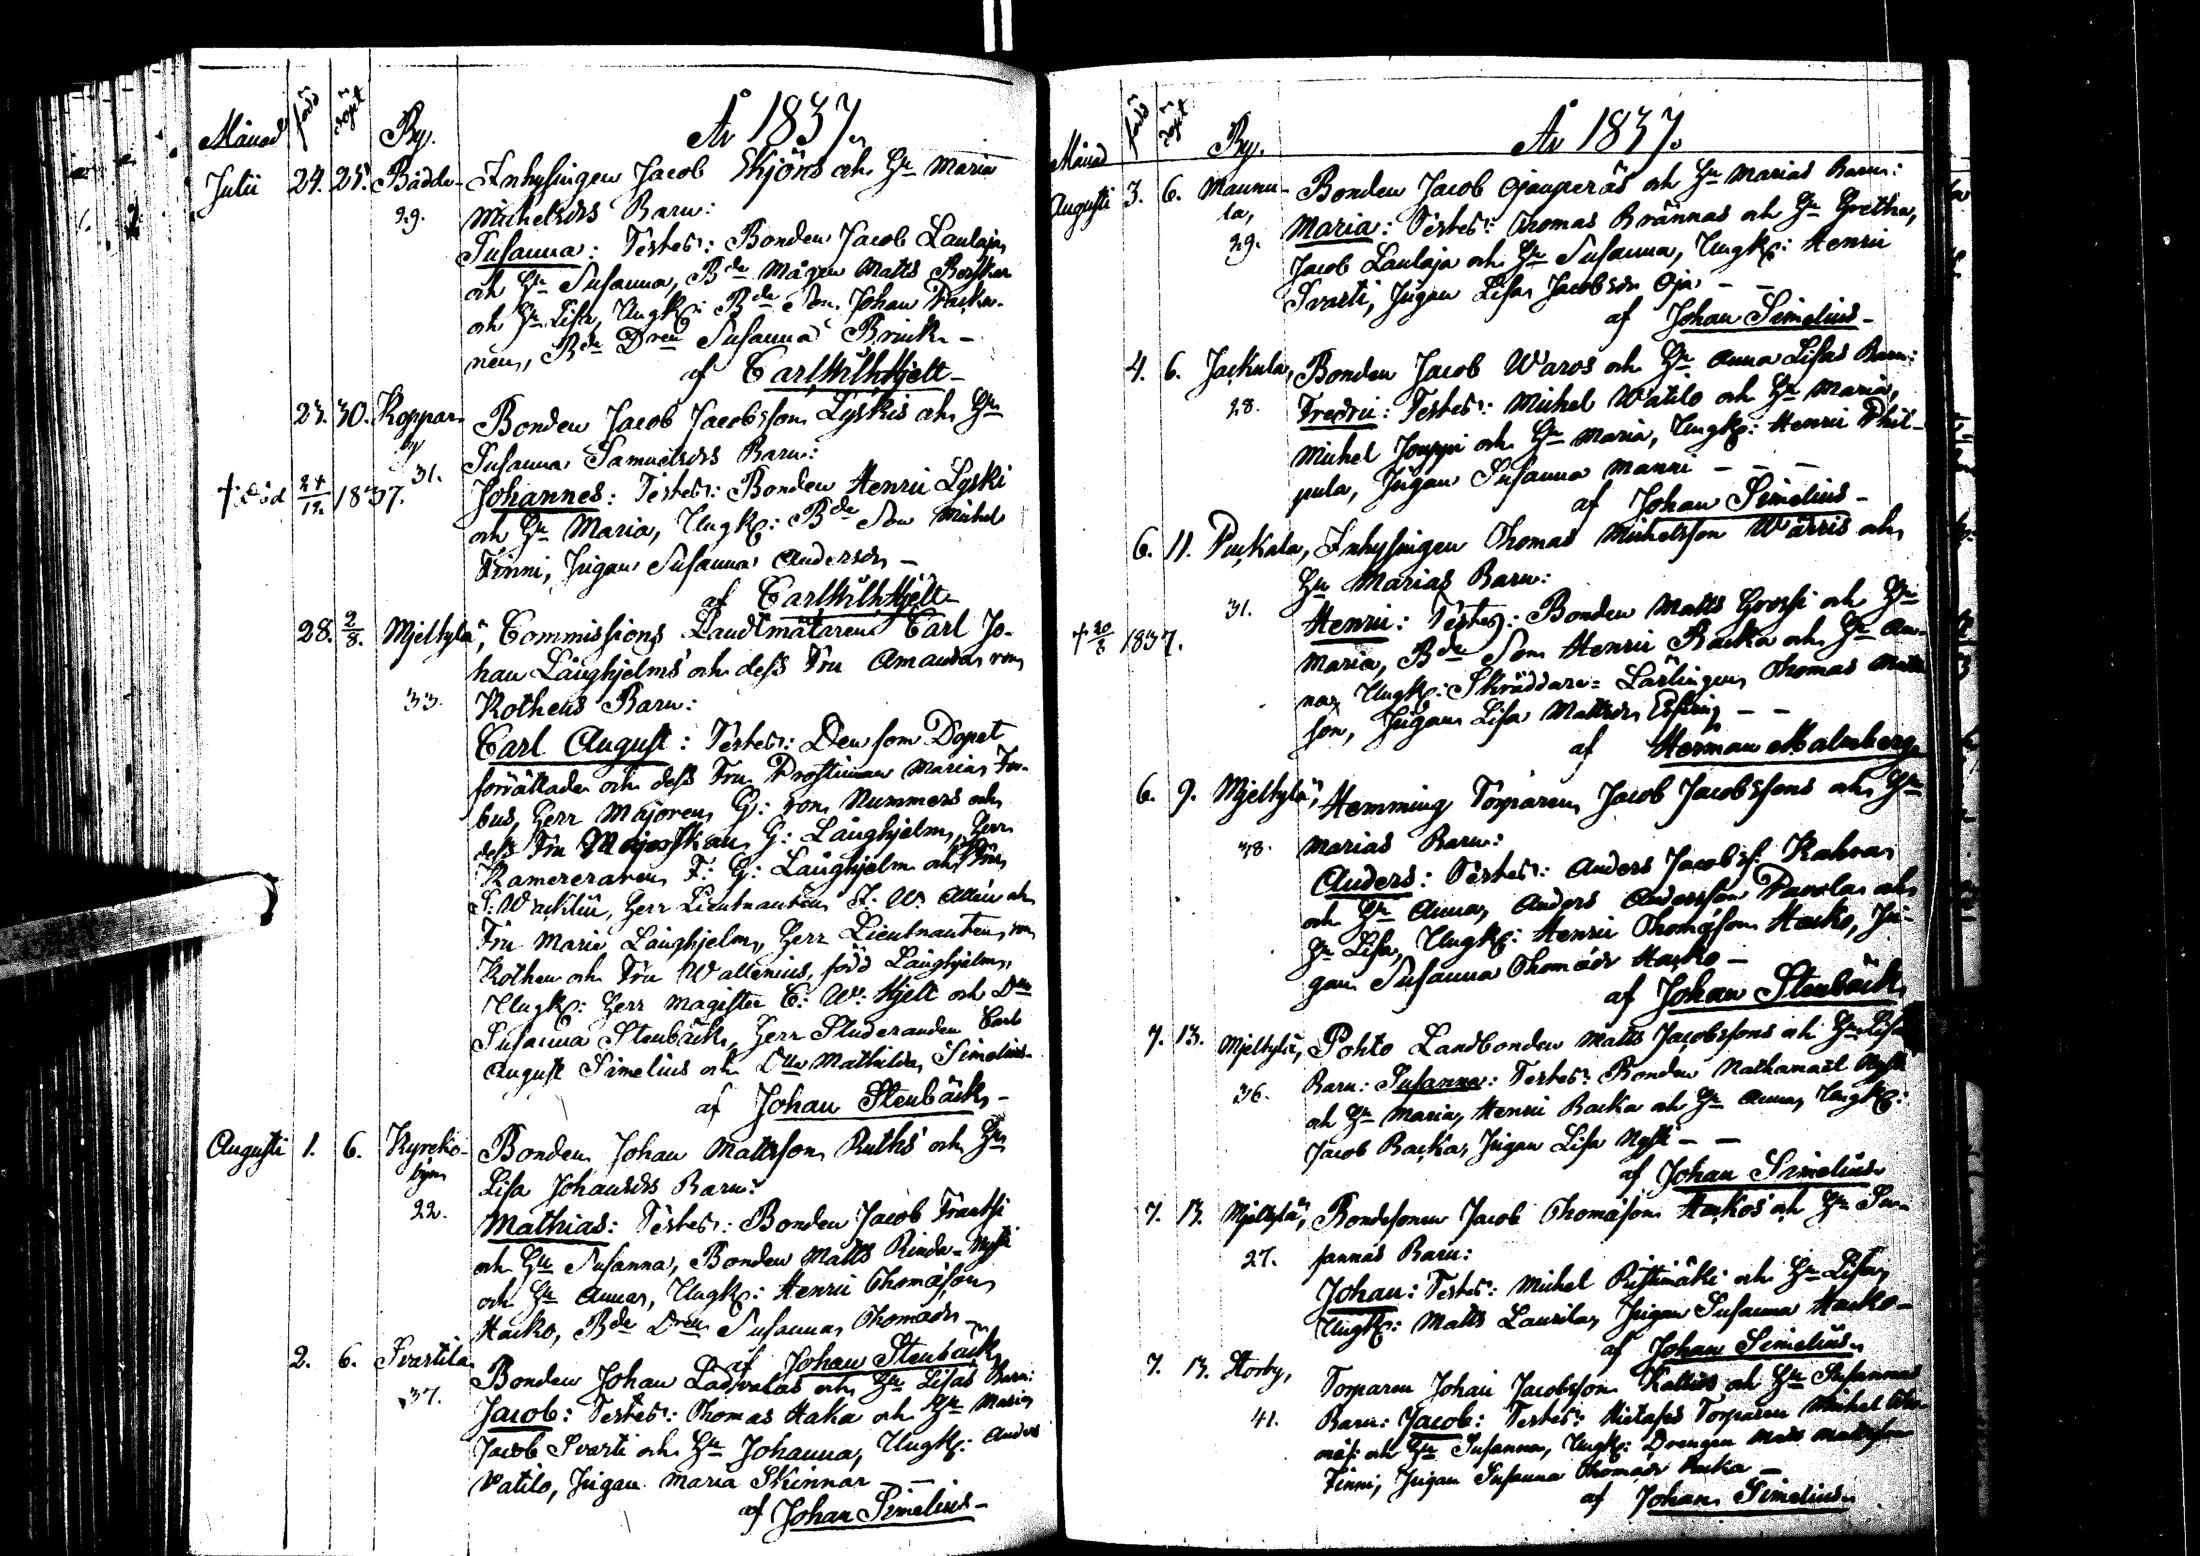 Månad född döpt By. År 1837.
Julii 24. 25. Rådde- Inhysingen Jacob Skjöns och Hu Maria
29. Michelsdrs Barn:
Susanna: Testes: Bonden Jacob Laulaja
och Hu Susanna, Bde Mågen Matts
och Hu Lisa, Ungk: Bde Son Johan Packa-
nen, Bde Dren Susanna Brink -
af Carl Wilh Hjelt -
23. 30. Koppar- Bonden Jacob Jacobsson Lyskis och Hu
by Susanna Samuelsdrs Barn:
31.
† död 24/12 1837. Johannes: Testes: Bonden Henric Lyski
och Hu Maria, Ungk: Bde Son Michel
Finni, Pigan Susanna Andersdr -
af Carl Wilh Hjelt
28. 2/8. Mjelkylä, Commissions Landtmätaren Carl Jo-
han Långhjelms och dess Fru Amanda von
33. Kothens Barn:
Carl August: Testes: Den som Dopet
förrättade och dess Fru Prostinnan Maria For-
bus, Herr Majoren G: von Nummers och
dess Fru Majorskan G: Långhjelm, Herr
Kamereraren F: G: Långhjelm och Fru
S: Wacklin, Herr Lieutnanten J: W. Allén och
Fru Marie Långhjelm, Herr Lieutnanten von
Kothen och Fru Wallenius, född Långhjelm,
Ungk: Herr Magister C: W: Hjelt och Dlle
Susanna Stenbäck, Herr Studeranden Carl
August Simelius och Dlle Mathilda Simelius
af Johan Stenbäck -
Augusti 1. 6. Kyrcko- Bonden Johan Mattsson Ruths och Hu
byn Lisa Johansdrs Barn:
22. Mathias: Testes: Bonden Jacob Frantsi
och Hu Susanna, Bonden Matts Rinda-Nysti
och Hu Anna, Ungk: Henric Thomasson
Hacko, Bde Dren Susanna Thomasdr -
af Johan Stenbäck
2. 6. Svartila Bonden Johan Ladvalas och Hu Lisas Barn:
37. Jacob: Testes: Thomas Haka och Hu Maria
Jacob Svarti och Hu Johanna, Ungk: Anders
Vatilo, Pigan Maria Skinnar - -
af Johan Simelius -
Månad född döpt By. År 1837.
Augusti 3. 6. Maunu- Bonden Jacob Ojanperäs och Hu Marias Barn:
la, Maria: Testes: Thomas Brännas och Hu Gretha,
29. Jacob Laulaja och Hu Susanna, Ungk: Henric
Svarti, Pigan Lisa Jacobsdr Oja - -
af Johan Simelius -
4. 6. Jackula, Bonden Jacob Waros och Hu Anna Lisas Barn:
28. Fredric: Testes: Michel Watilo och Hu Maria,
Michel Jouppi och Hu Maria, Ungk: Henric Phil-
pula, Pigan Susanna Manni - - -
af Johan Simelius -
6. 11. Puckala, Inhysingen Thomas Michelsson Wärris och
Hu Marias Barn:
31. Henric: Testes: Bonden Matts Grossi och Hu
† 20/8 1837. Maria, Bde Son Henric Backa och Hu An-
na, Ungk: Skräddare-Lärlingen Thomas Matts-
son, Pigan Lisa Mattsdr Essing - -
af Herman Malmberg
6. 9. Mjelkylä, Hemming Torparen Jacob Jacobssons och Hu
38. Marias Barn:
Anders: Testes: Anders Jacobss: Kahra
och Hu Anna, Anders Andersson Pavola och
Hu Lisa, Ungk: Henric Thomasson Hacko, Pi-
gan Susanna Thomasdr Hacko -
af Johan Stenbäck
7. 13. Mjelkylä, Pohto Landbonden Matts Jacobssons och Hu Lisas
36. Barn: Susanna: Testes: Bonden Nathanael Nysti
och Hu Maria, Henric Backa och Hu Anna, Ungk:
Jacob Backa, Pigan Lisa Nysti - -
af Johan Simelius
7. 13. Mjelkylä, Bondesonen Jacob Thomasson Hackos och Hu Su-
27. sannas Barn:
Johan: Testes: Michel Ristimäki och Hu Lisa,
Ungk: Matts Laurila, Pigan Susanna Hacko -
af Johan Simelius
7. 13. Storby, Torparen Johan Jacobsson Kallios och Hu Susannas
41. Barn: Jacob: Testes: Hietases Torparen Michel Tho-
mass: och Hu Susanna, Ungk: Drengen Matts Mattsson
Finni, Pigan Susanna Thomasdr Backa -
af Johan Simelius